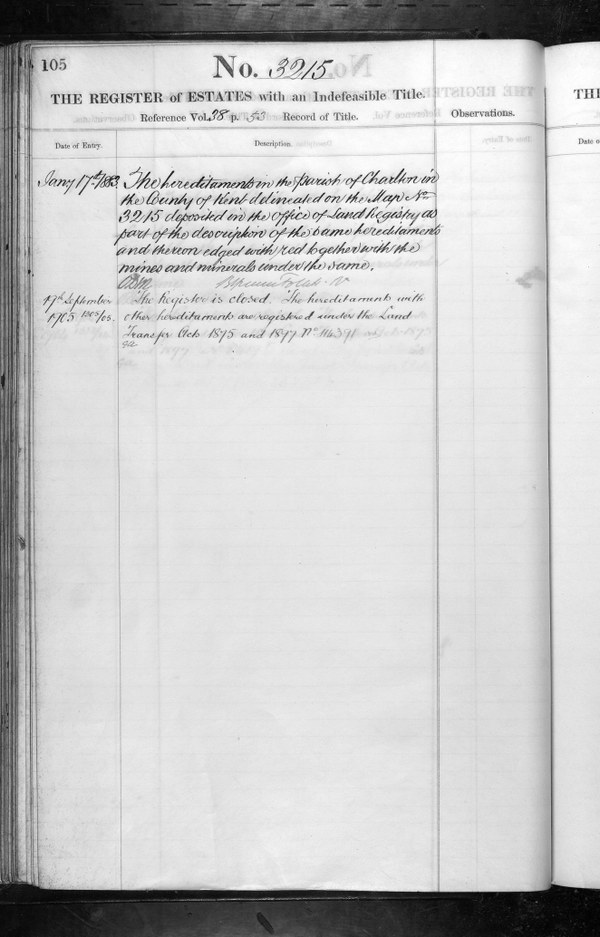 105
No. 3215
THE REGISTER of ESTATES with an Indefeasible Title.
Reference Vol. 38 p. 53 Record of Title.
Observations.
Date of Entry.
Description.
Jany 17th 1883.
The hereditaments in the Parish of Charlton in
the County of Kent delineated on the Map No
3215 deposited in the Office of Land Registry as
part of the description of the same hereditaments
and thereon edged with red together with the
mines and minerals under the same.
17th September
1905
The Register is closed. The hereditaments with
other hereditaments are registered under the Land
Transfer Acts 1875 and 1897 No
THE
Date o